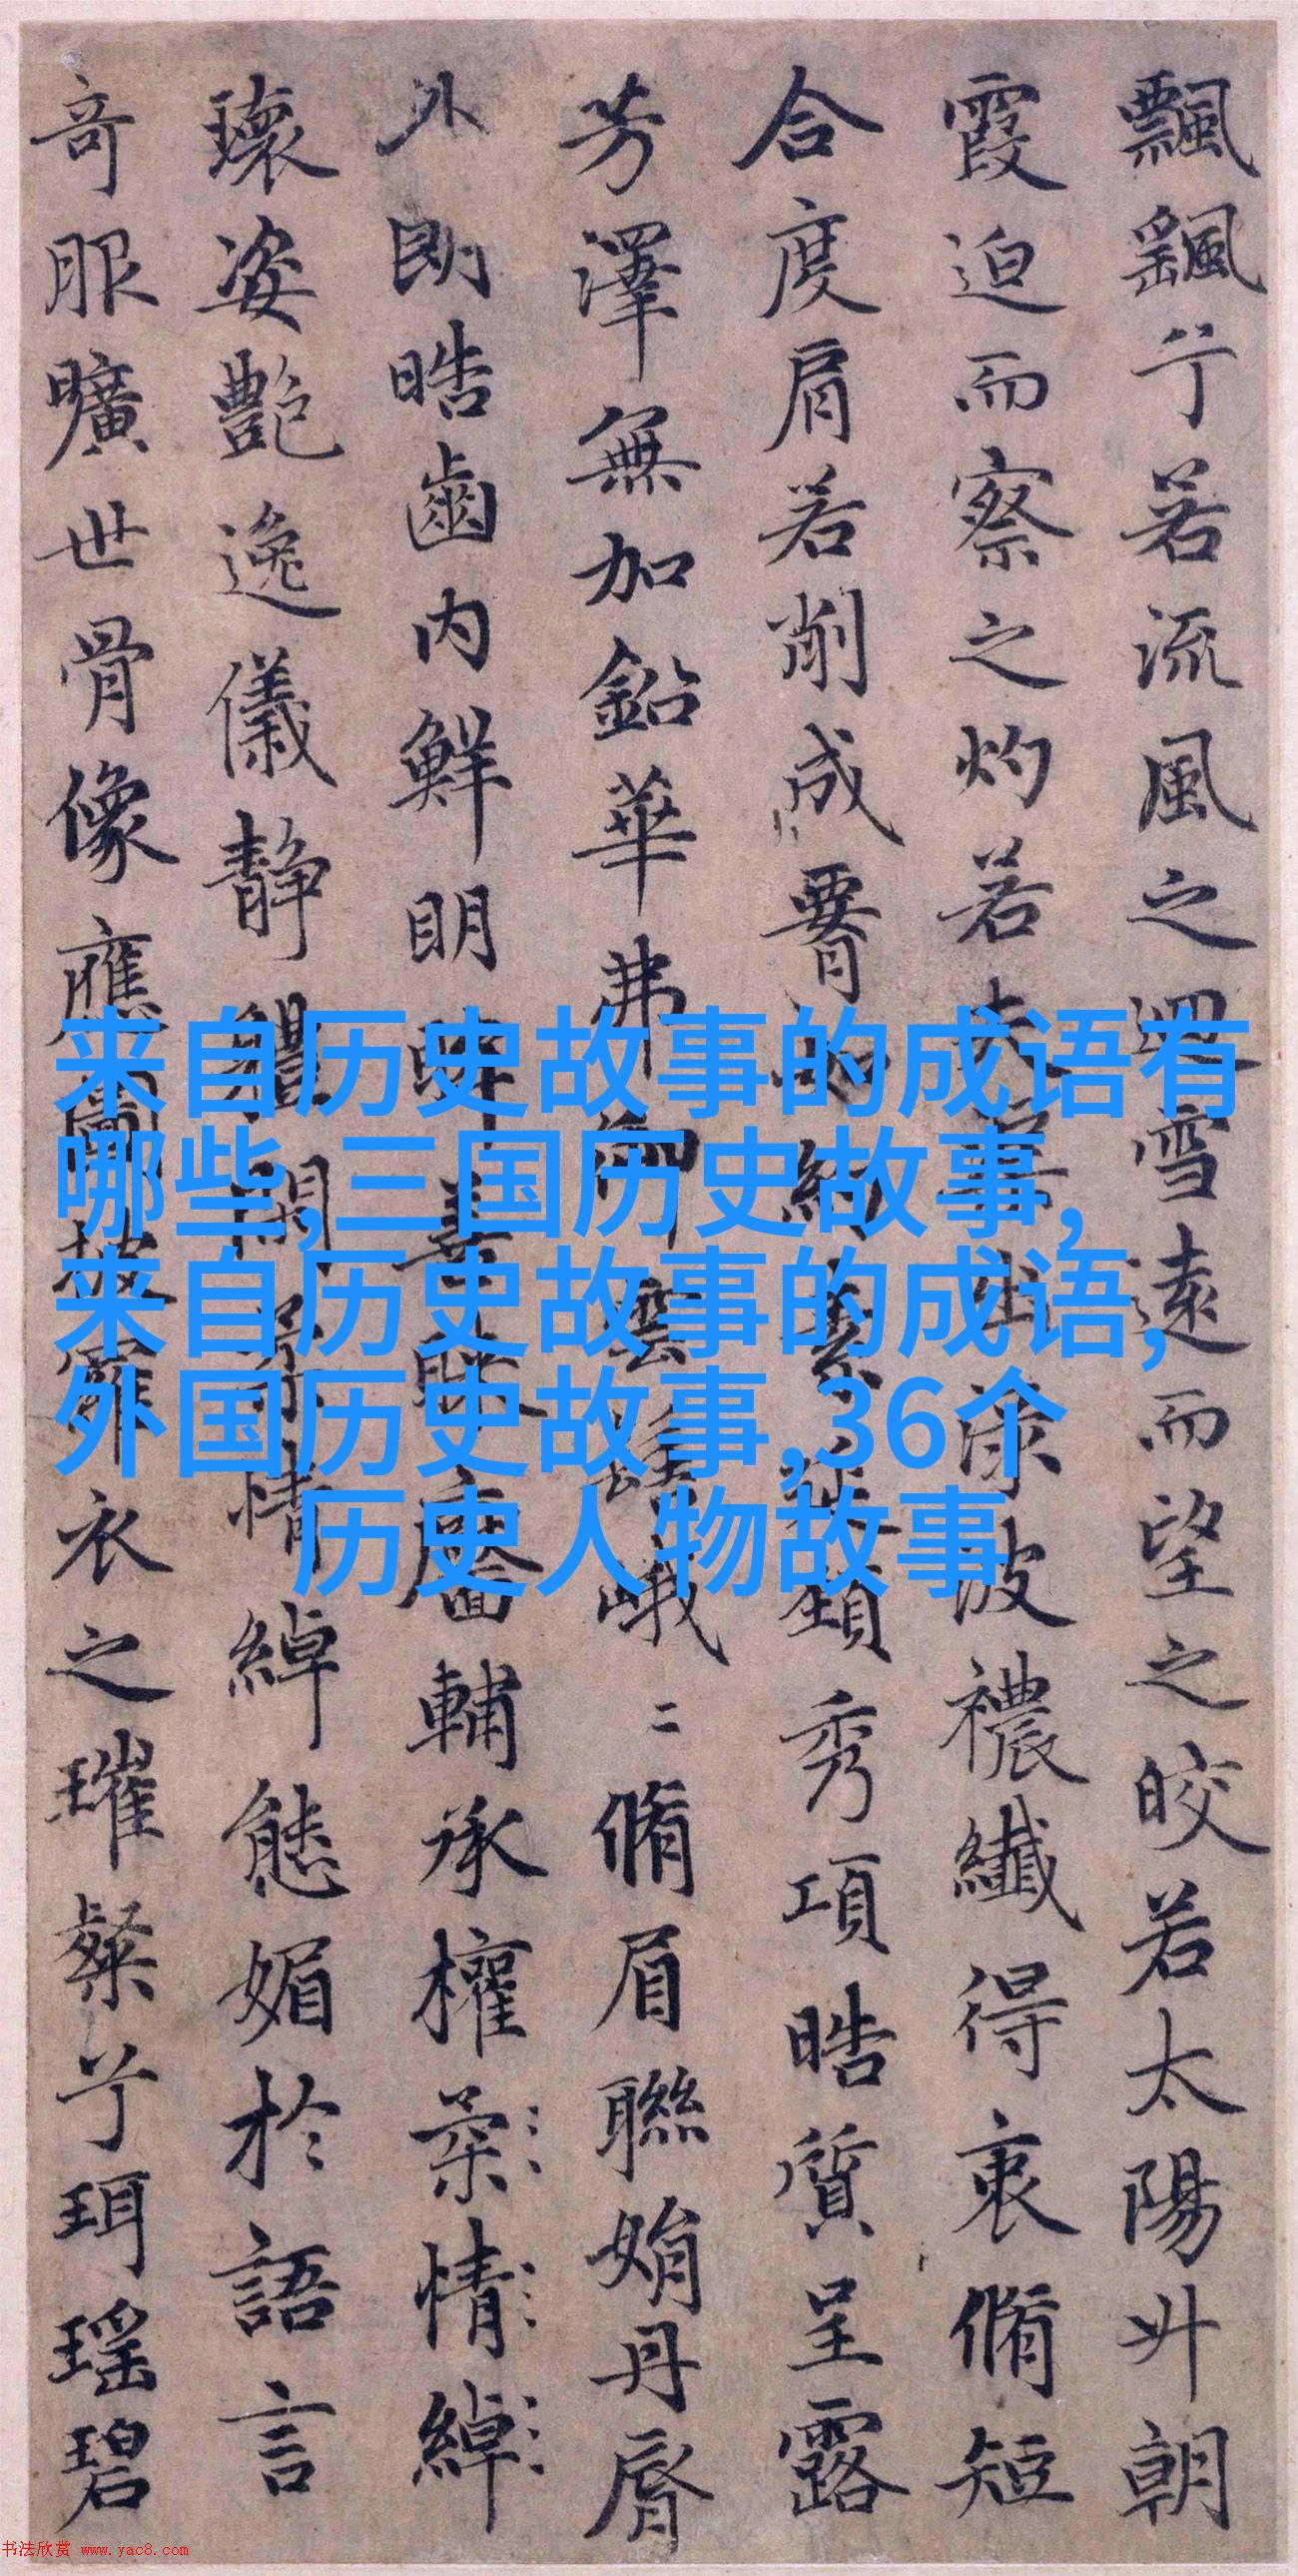 飄飖兮若流風之迴雪遠而望之皎若太陽升朝
霞迫而察之灼若夫蕖出淥波襛纖得衷脩短
合度肩若削成署如約素延頸秀項皓質呈露
芳澤無加鉛華弗御雲髻峨二脩眉聯娟丹脣
外朗皓齒内鮮明眸善睞靨輔承權柔情綽
瓌姿艶逸儀静體閑柔情綽態媚於語言
奇服曠世骨像應圖披羅衣之璀粲兮珥瑶碧
来自历史故事的成语有
哪些,三国历史故事,
来自历史故事的成语,
外国历史故事,36个
历史人物故事
书法欣赏 www.yac8.com